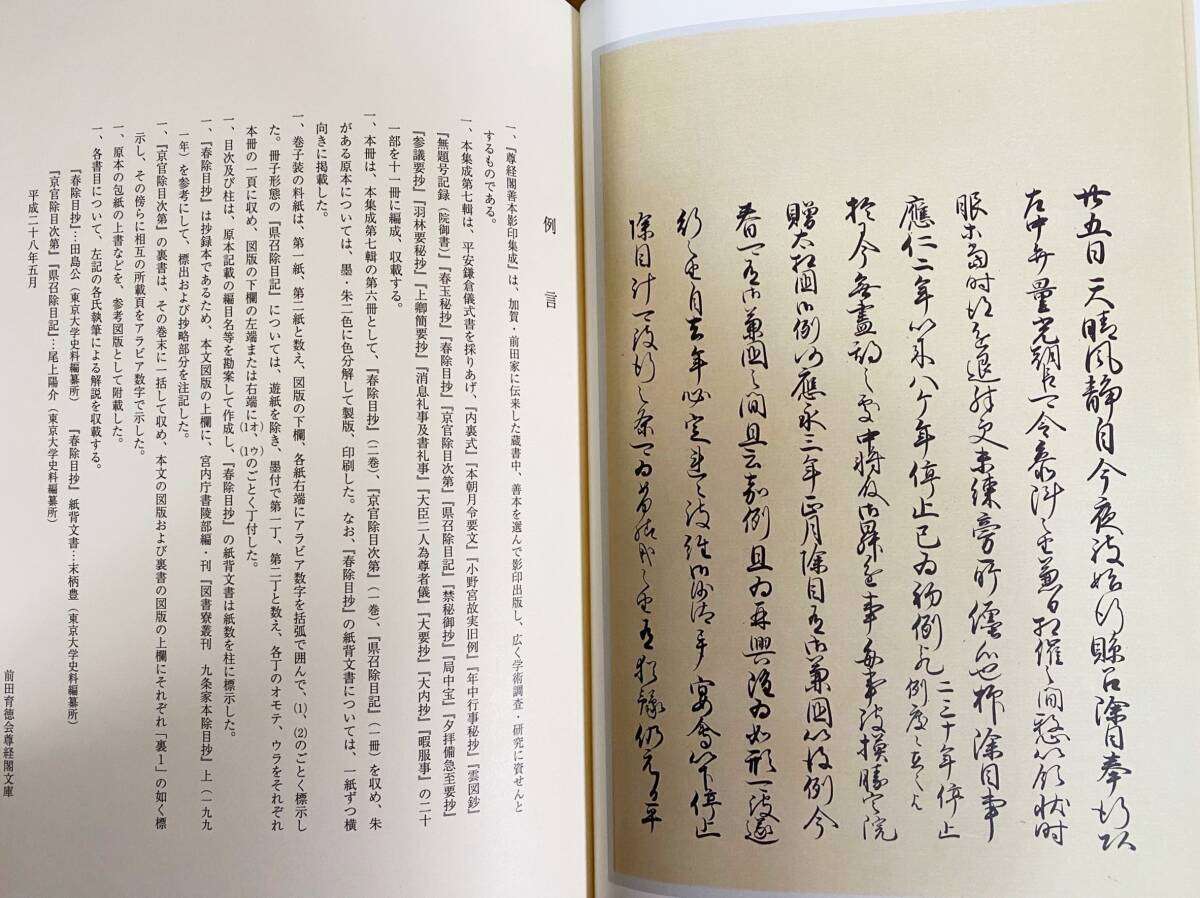 廿五日 天晴風静自今夜被始行縣召除目奉行
左中弁量光朝臣可令参陣之由兼日相催之間愁以領状時
除目事
應仁二年以来八ケ年停止已為初例 二三十年停止 例度々在之
於今無盡期之處中将殿御昇進事毎事被摸勝定院
贈太相国御例以應永三年正月除目有御兼国 例今
春可有御兼国之間且云嘉例且為再興雖為如形可被遂
行之由自去年必定 宴會以下停止
除目計可被行之条可為
例言
一、『尊経閣善本影印集成』は、加賀・前田家に伝来した蔵書中、善本を選んで影印出版し、広く学術調査・研究に資せんと
するものである。
一、本集成第七輯は、平安鎌倉儀式書を採りあげ、『内裏式』『本朝月令要文』『小野宮故実旧例』『年中行事秘抄』『雲図鈔』
『無題号記録(院御書)』『春玉秘抄』『春除目抄』『京官除目次第』『県召除目記』『禁秘御抄』『局中宝』『夕拝備急至要抄』
『参議要抄』『羽林要秘抄』『上卿簡要抄』『消息礼事及書礼事』『大臣二人為尊者儀』『大要抄』『大内抄』『暇服事』の二十
一部を十一冊に編成、収載する。
一、本冊は、本集成第七輯の第六冊として、『春除目抄』(二巻)、『京官除目次第』(一巻)、『県召除目記』(一冊)を収め、朱
がある原本については、墨・朱二色に色分解して製版、印刷した。なお、『春除目抄』の紙背文書については、一紙ずつ横
向きに掲載した。
一、巻子装の料紙は、第一紙、第二紙と数え、図版の下欄、各紙右端にアラビア数字を括弧で囲んで、(1)、(2)のごとく標示し
た。冊子形態の『県召除目記』については、遊紙を除き、墨付で第一丁、第二丁と数え、各丁のオモテ、ウラをそれぞれ
本冊の一頁に収め、図版の下欄の左端または右端に(1オ)、(1ウ)のごとく丁付した。
一、目次及び柱は、原本記載の編目名等を勘案して作成し、『春除目抄』の紙背文書は紙数を柱に標示した。
一、『春除目抄』は抄録本であるため、本文図版の上欄に、宮内庁書陵部編・刊『図書寮叢刊 九条家本除目抄』上(一九九
一年)を参考にして、標出および抄略部分を注記した。
一、『京官除目次第』の裏書は、その巻末に一括して収め、本文の図版および裏書の図版の上欄にそれぞれ「裏1」の如く標
示し、その傍らに相互の所載頁をアラビア数字で示した。
一、原本の包紙の上書などを、参考図版として附載した。
一、各書目について、左記の各氏執筆による解説を収載する。
『春除目抄』…田島公(東京大学史料編纂所) 『春除目抄』紙背文書…末柄豊(東京大学史料編纂所)
『京官除目次第』『県召除目記』…尾上陽介(東京大学史料編纂所)
平成二十八年五月
前田育徳会尊経閣文庫